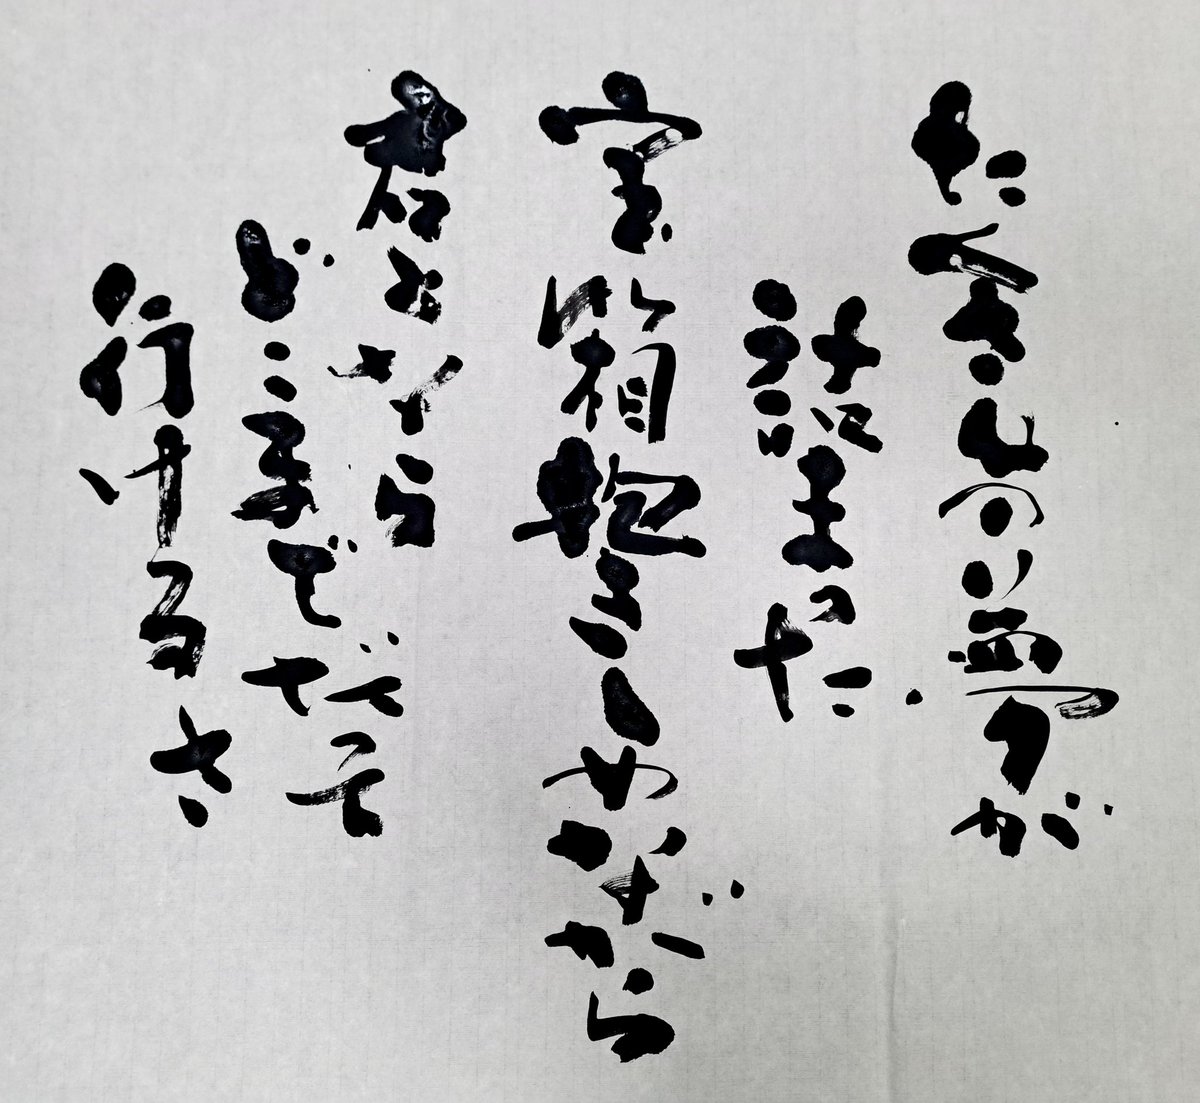 たくさんの夢が
詰まった
宝箱抱きしめながら
君となら
どこまでだって
行けるさ